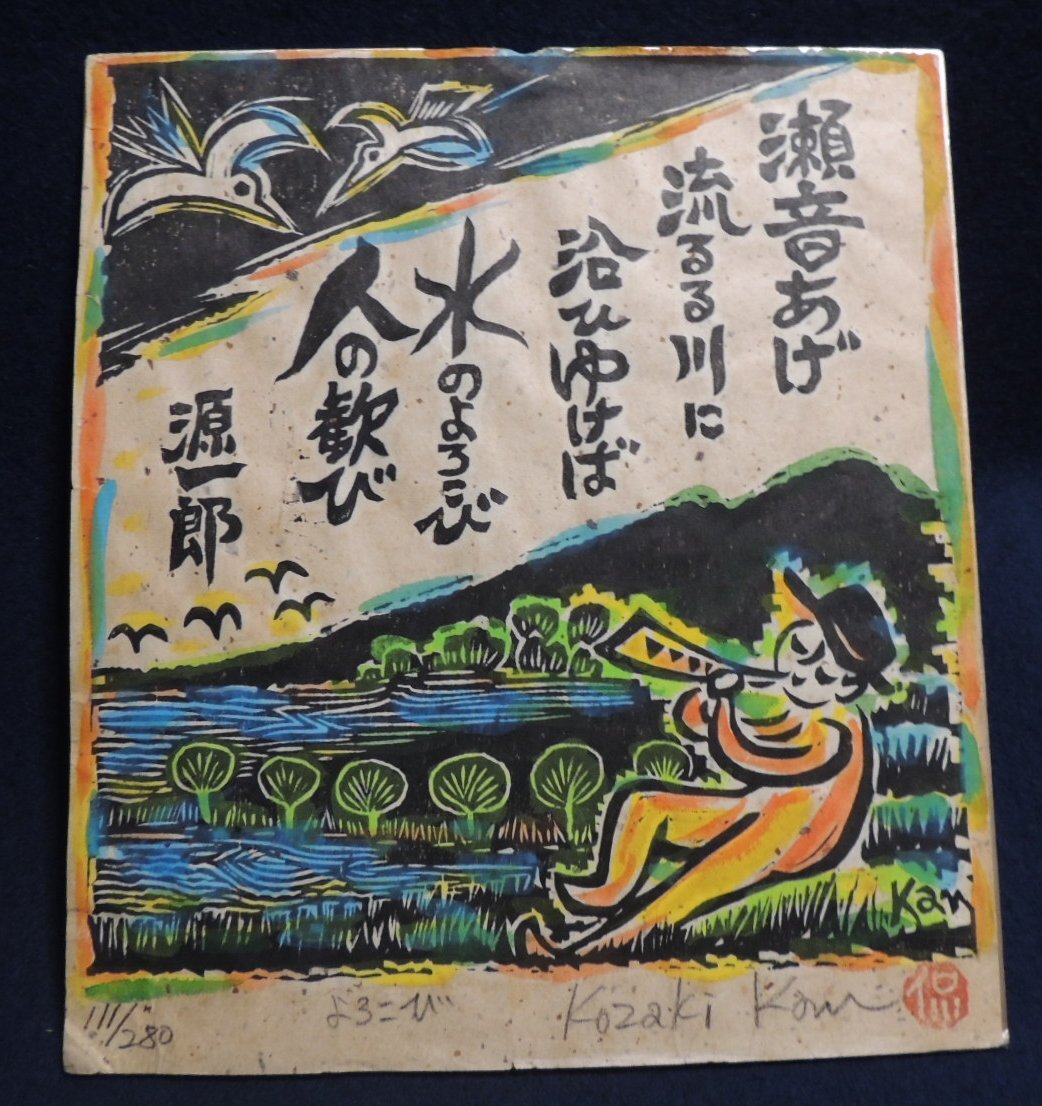 瀬音あげ
流るる川に
沿ひゆけば
水のよろこび
人の歓び
源一郎
Kan
111/280
よろこび
Kozaki Kan
侃